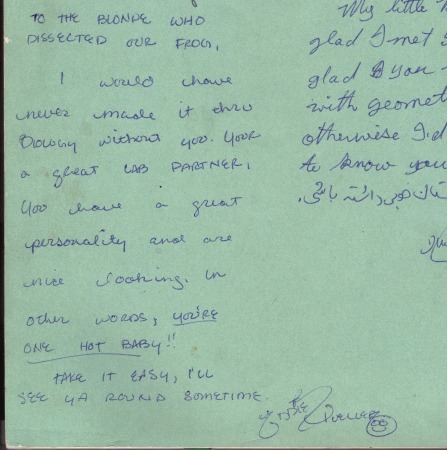 TO THE BLONDE WHO
DISSECTED OUR FROG,
I would have
never made it thru
Biology without you. Your
a great LAB PARTNER,
You have a great
personality and are
nice looking. In
other words, YOU'RE
ONE HOT BABY!!
TAKE IT EASY, I'LL
SEE YA ROUND SOMETIME.
My little
glad I met
glad you
with geomet
otherwise I'd
to know you